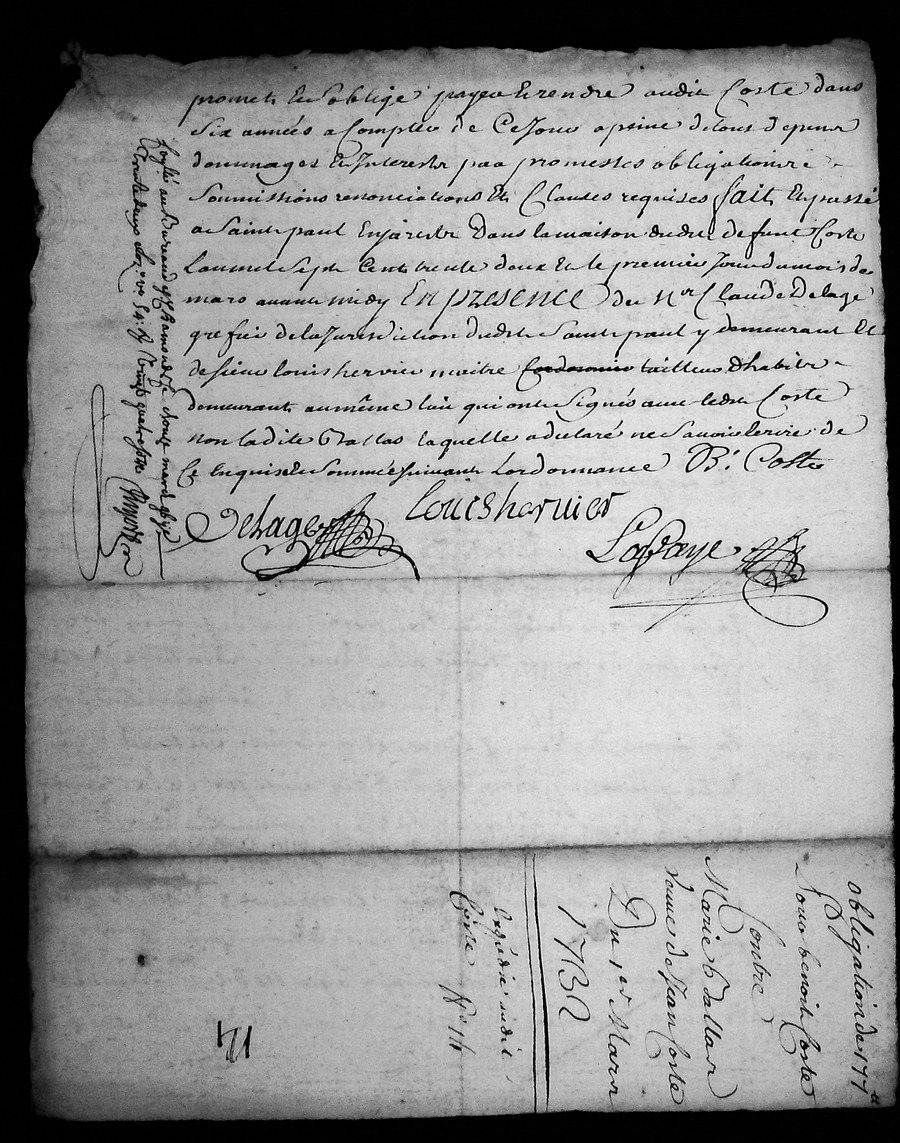 promet et s'oblige payer et rendre audit Coste dans
six années a Compter de Ce Jour a peine de tous depens
dommages et Interests par promesses obligations
soumissions renonciations Et Clauses requises fait Et passé
a Saint paul En Jarestz Dans la maison dudit defunt Coste
Lan mil Sept Cent trente deux Et le premier Jour du mois de
mars avant midy En presence de Mr Claude Delage
grefier de la Jurisdiction dudit Saint paul y demeurant Et
de sieur louis hervier maitre tailleur d'habits
demeurant au même lieu qui ont Signés avec ledit Coste
non ladite laquelle a declaré ne Savoir Ecrire de
Ce Enquise Et Sommée Suivant Lordonnance B. Coste
Delage louis hervier
Lafaye
obligation de 177 ll
Pour benoit Coste
Contre
Marie
veuve de Jean Coste
Du 1er Mars
1732
Expédié audit
Coste